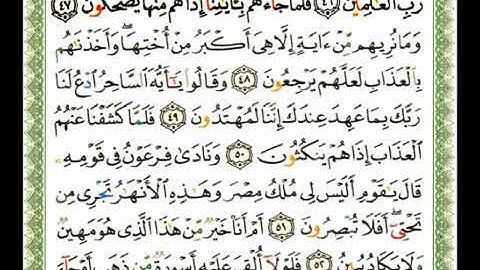 رَبِّ ٱلْعَٰلَمِينَ ٤٦ فَلَمَّا جَآءَهُم بِـَٔايَٰتِنَآ إِذَا هُم مِّنْهَا يَضْحَكُونَ ٤٧
وَمَا نُرِيهِم مِّنْ ءَايَةٍ إِلَّا هِىَ أَكْبَرُ مِنْ أُخْتِهَا ۖ وَأَخَذْنَٰهُم
بِٱلْعَذَابِ لَعَلَّهُمْ يَرْجِعُونَ ٤٨ وَقَالُوا۟ يَٰٓأَيُّهَ ٱلسَّاحِرُ ٱدْعُ لَنَا
رَبَّكَ بِمَا عَهِدَ عِندَكَ إِنَّنَا لَمُهْتَدُونَ ٤٩ فَلَمَّا كَشَفْنَا عَنْهُمُ
ٱلْعَذَابَ إِذَا هُمْ يَنكُثُونَ ٥٠ وَنَادَىٰ فِرْعَوْنُ فِى قَوْمِهِۦ
قَالَ يَٰقَوْمِ أَلَيْسَ لِى مُلْكُ مِصْرَ وَهَٰذِهِ ٱلْأَنْهَٰرُ تَجْرِى مِن
تَحْتِىٓ ۖ أَفَلَا تُبْصِرُونَ ٥١ أَمْ أَنَا۠ خَيْرٌ مِّنْ هَٰذَا ٱلَّذِى هُوَ مَهِينٌ
وَلَا يَكَادُ يُبِينُ ٥٢ فَلَوْلَآ أُلْقِىَ عَلَيْهِ أَسْوِرَةٌ مِّن ذَهَبٍ أَوْ جَآءَ